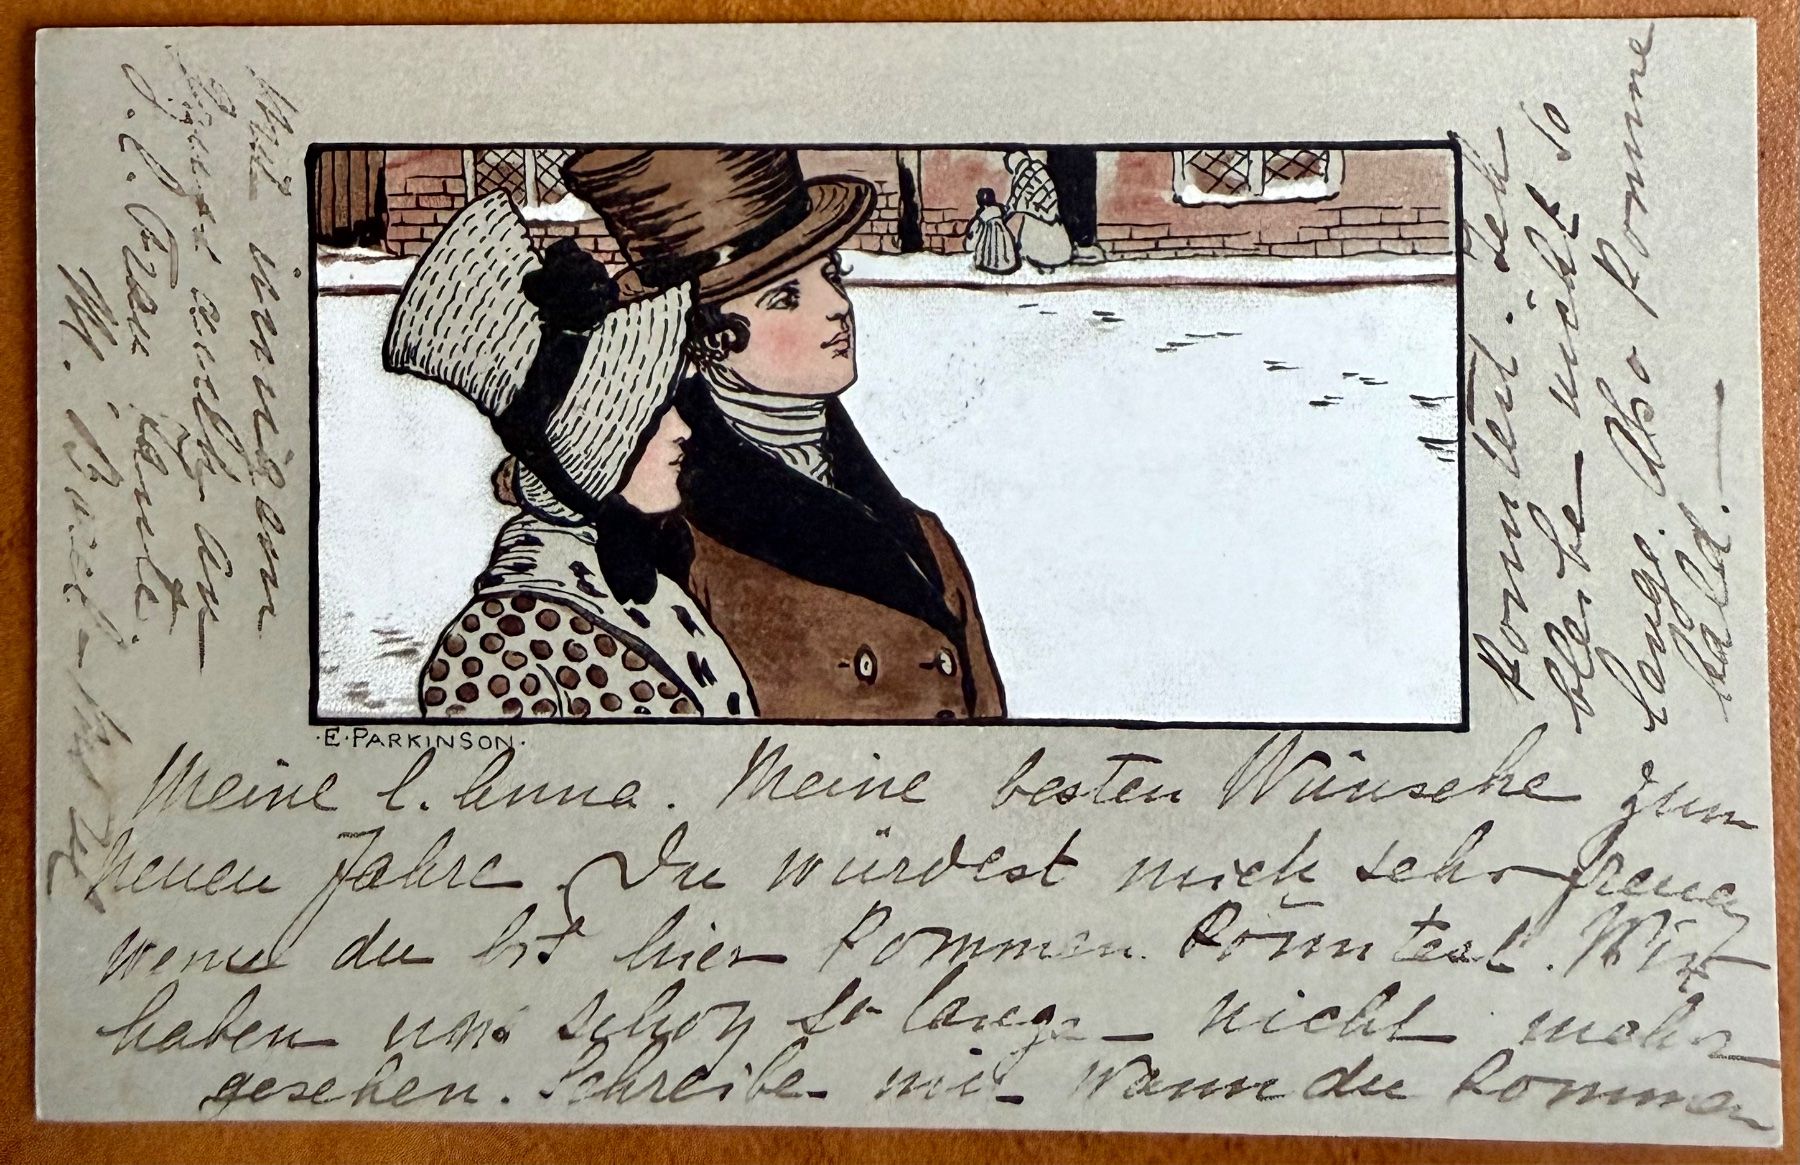 ·E·PARKINSON·
Meine l. Anna. Meine besten Wünsche zum
neuen Jahre. Du würdest mich sehr freuen
wenn du bis hier kommen könntest. Wir
haben uns schon so lange nicht mehr
gesehen. Schreibe mir wann du kommen
kommtest. Ich
bleibe nicht so
lange. Also komme
bald.—
Mit innigem
Gruss auch an
Tante.